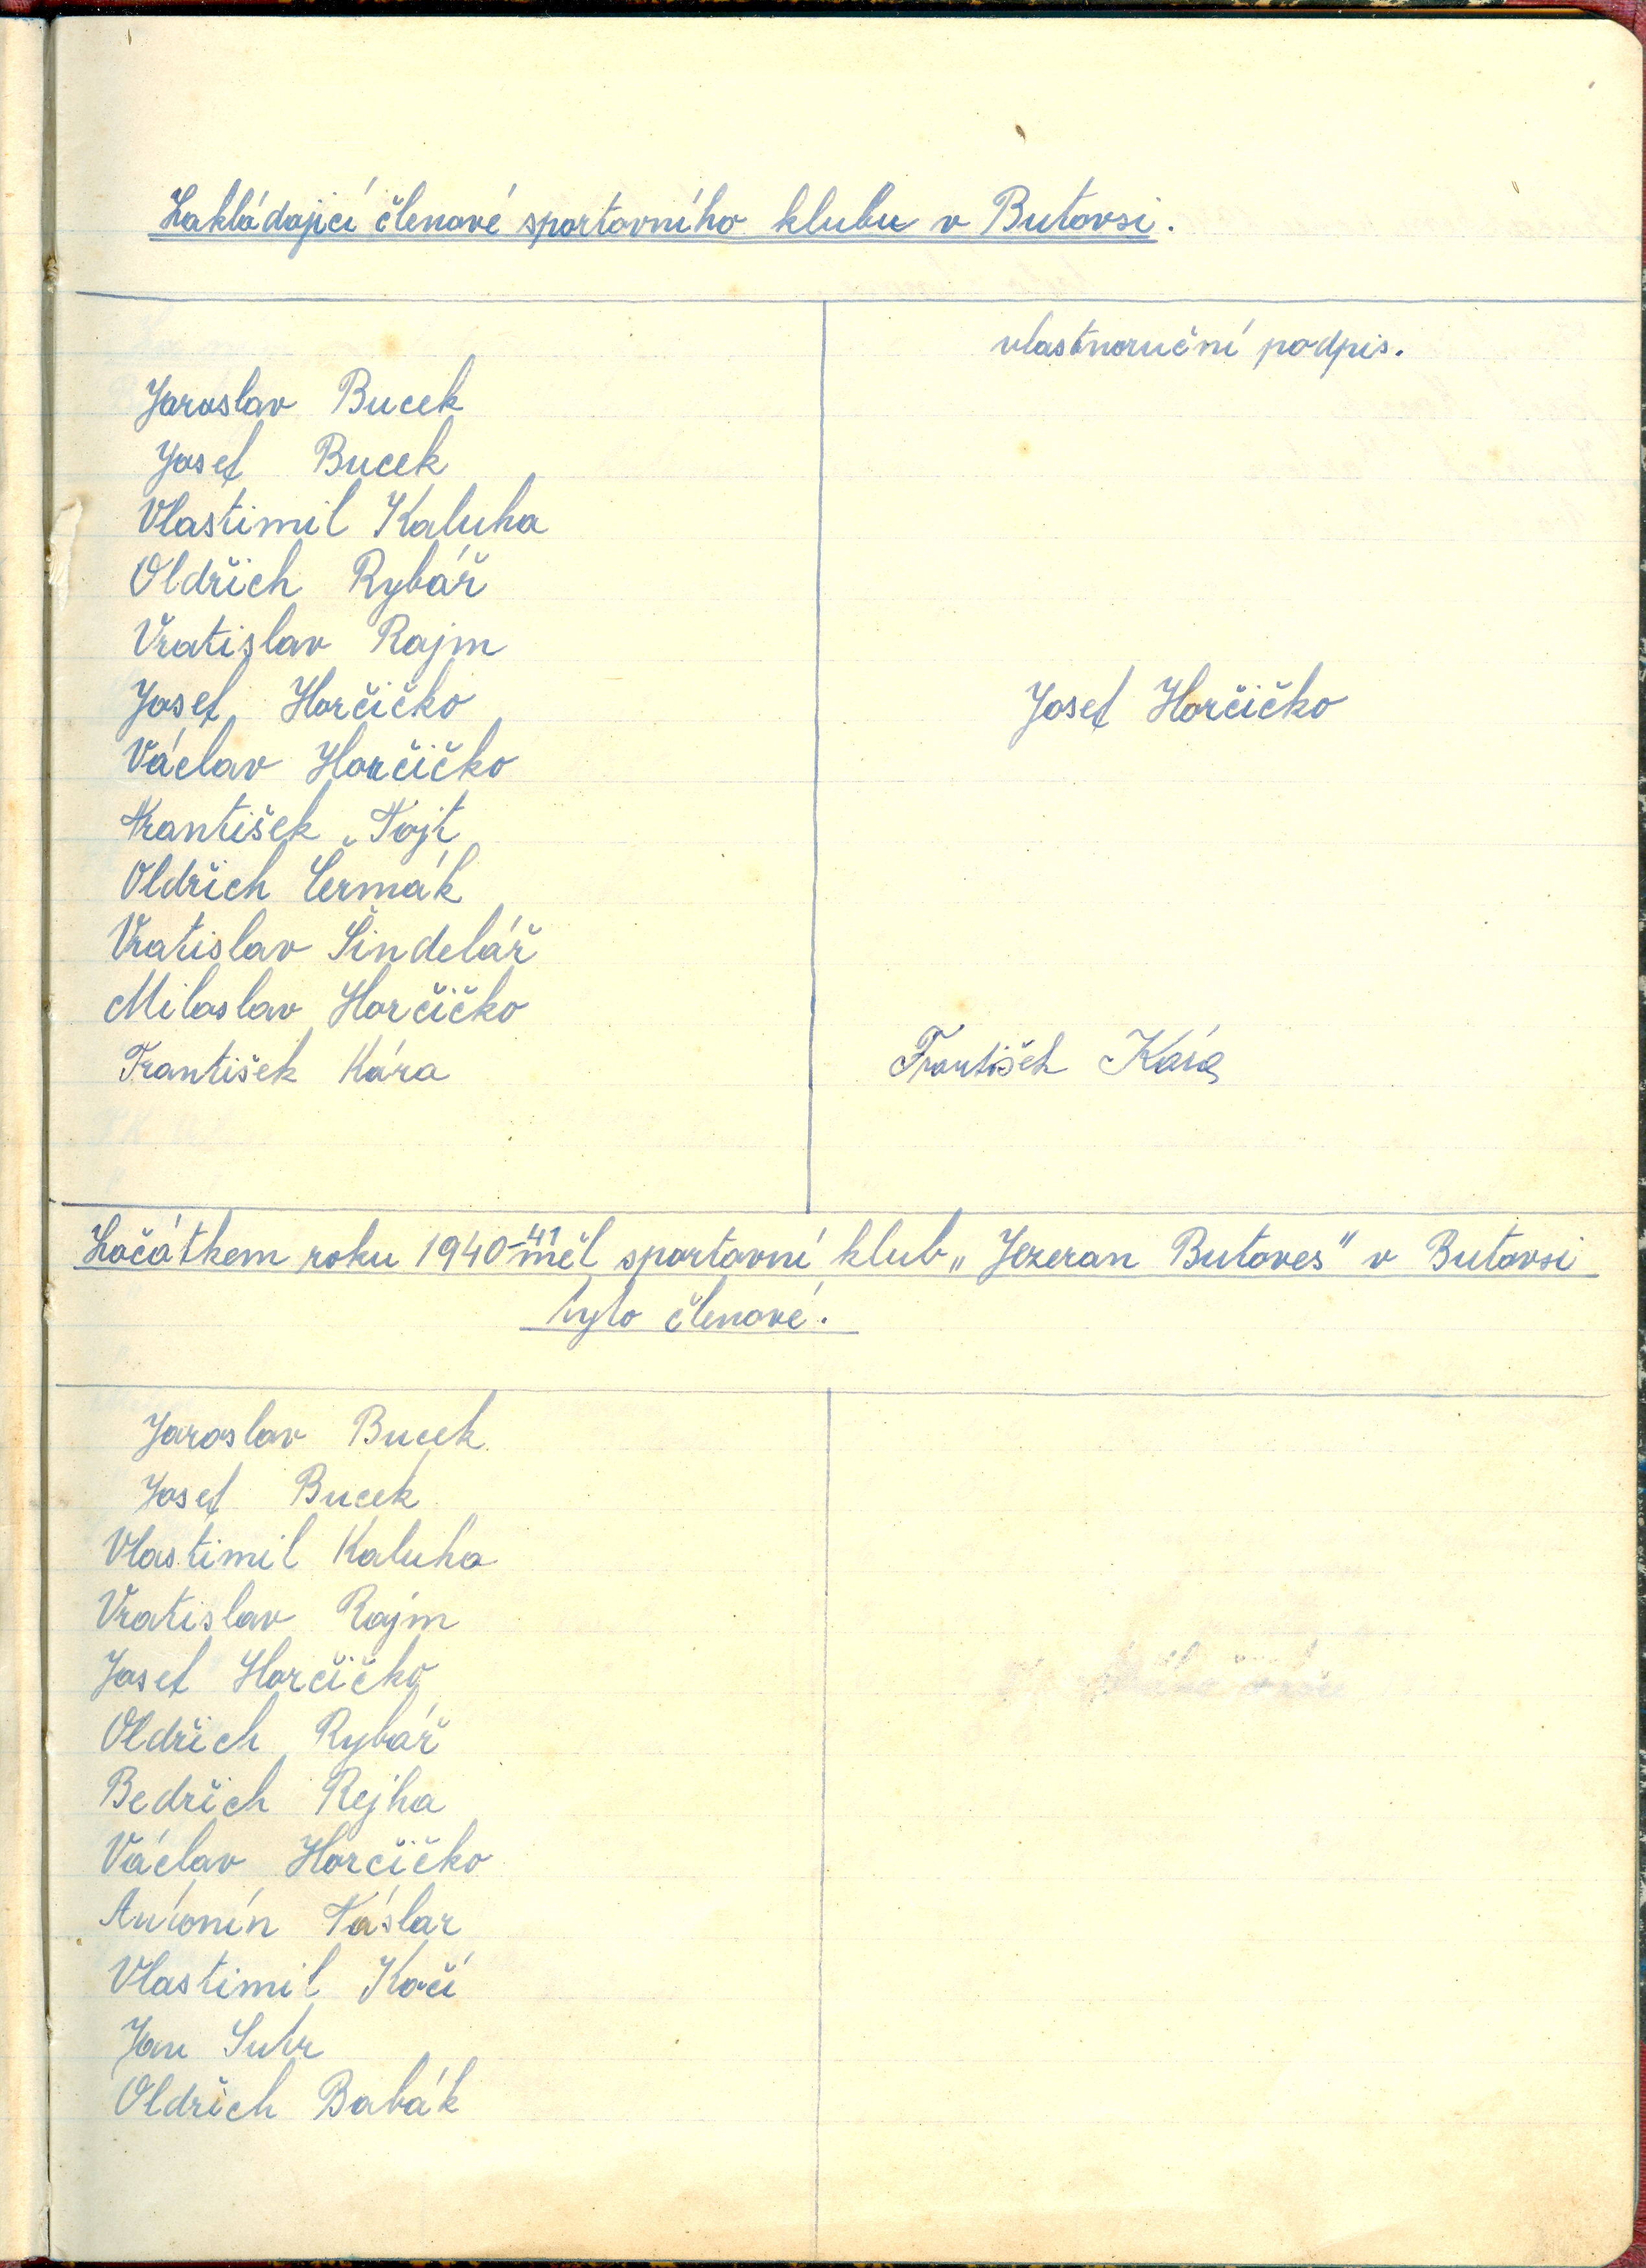 Zakládající členové sportovního klubu v Butovsi.
vlastnoruční podpis.
Jaroslav Bucek
Josef Bucek
Vlastimil Kaluha
Oldřich Rybář
Vratislav Rajm
Josef Horčičko Josef Horčičko
Václav Horčičko
František Fojt
Oldřich Čermák
Vratislav Šindelář
Miloslav Horčičko
František Kára František Kára
Začátkem roku 1940-41 měl sportovní klub „Jezeran Butoves" v Butovsi
tyto členové.
Jaroslav Bucek
Josef Bucek
Vlastimil Kaluha
Vratislav Rajm
Josef Horčičko
Oldřich Rybář
Bedřich Rejha
Václav Horčičko
Antonín Táslar
Vlastimil Kočí
Jan Šubr
Oldřich Babák